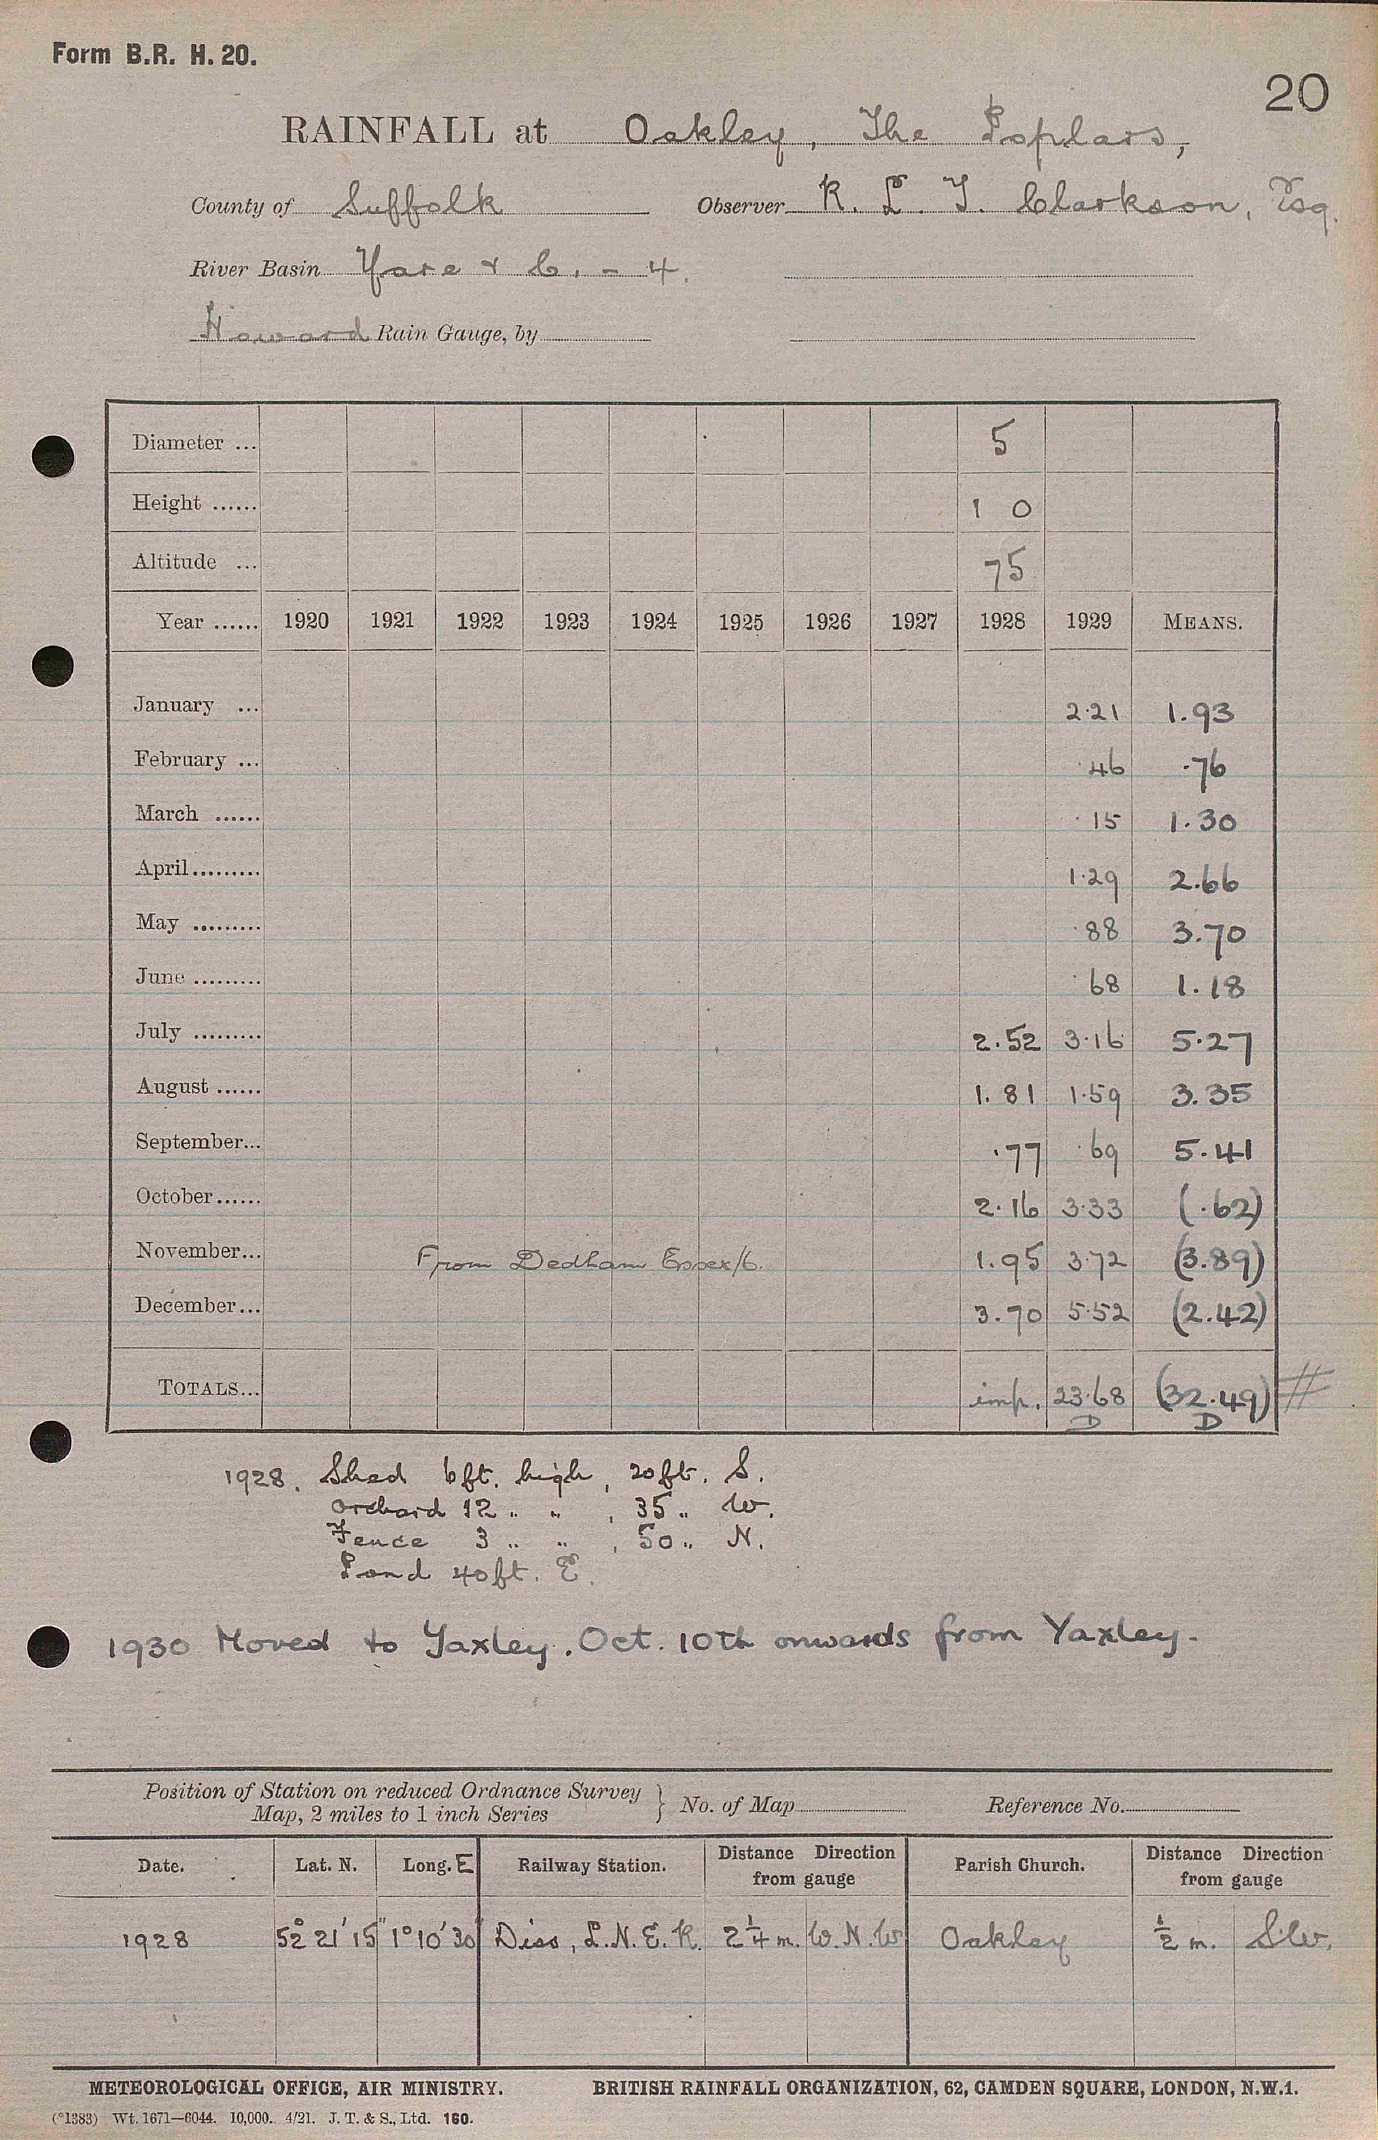 Form B.R. H. 20.
20
RAINFALL at Oakley, The Poplars,
County of Suffolk Observer R. L. T. Clarkson, Esq.
River Basin Yare & C. - 4.
Howard Rain Gauge, by
Diameter ... 5
Height ...... 1 0
Altitude ... 75
Year ...... 1920 1921 1922 1923 1924 1925 1926 1927 1928 1929 MEANS.
January ... 2.21 1.93
February ... .46 .76
March ...... .15 1.30
April ......... 1.29 2.66
May ......... .88 3.70
June ......... .68 1.18
July ......... 2.52 3.16 5.27
August ...... 1.81 1.59 3.35
September... .77 .69 5.41
October...... 2.16 3.33 (.62)
November... From Dedham Essex/6. 1.95 3.72 (3.89)
December... 3.70 5.52 (2.42)
TOTALS... imp. 23.68 (32.49) #
D D
1928. Shed 6ft. high, 20ft. S.
Orchard 12 " " , 35 " W.
Fence 3 " " , 50 " N.
Pond 40ft. E.
1930 Moved to Yaxley. Oct. 10th onwards from Yaxley.
Position of Station on reduced Ordnance Survey
Map, 2 miles to 1 inch Series } No. of Map Reference No.
Date. Lat. N. Long. E Railway Station. Distance from gauge Direction Parish Church. Distance from gauge Direction
1928 52° 21' 15" 1° 10' 30" Diss, L.N.E.R. 2 1/4 m. W.N.W Oakley 1/2 m. SW.
METEOROLOGICAL OFFICE, AIR MINISTRY. BRITISH RAINFALL ORGANIZATION, 62, CAMDEN SQUARE, LONDON, N.W.1.
(*1383) Wt. 1671—6044. 10,000. 4/21. J. T. & S., Ltd. 160.